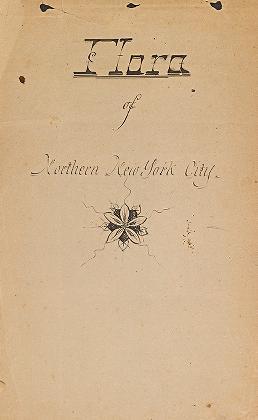 Flora
of
Northern New York City.